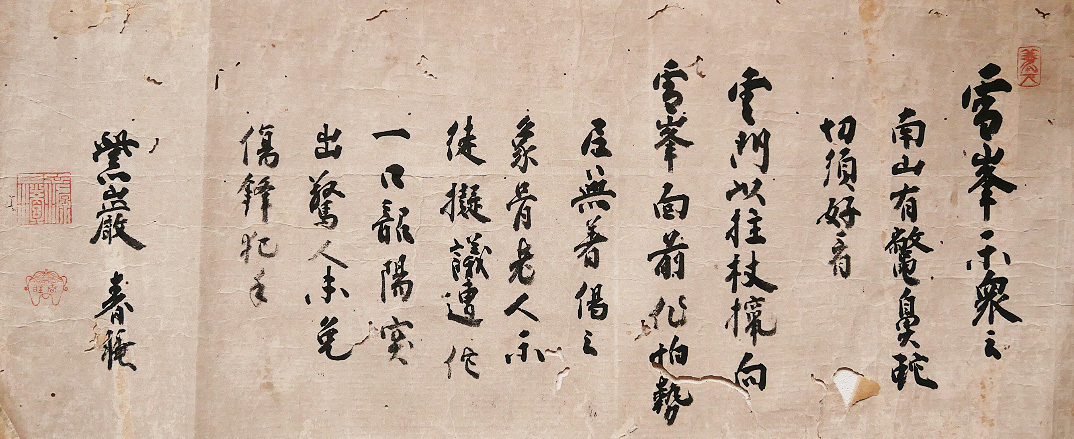 雪峯示衆云
南山有鼈鼻蛇
切須好看
雲門以拄杖攛向
雪峯面前作怕勢
尼無著偈云
象骨老人示
徒擬議遭他
一口韶陽突
出驚人未免
傷鋒犯手
春